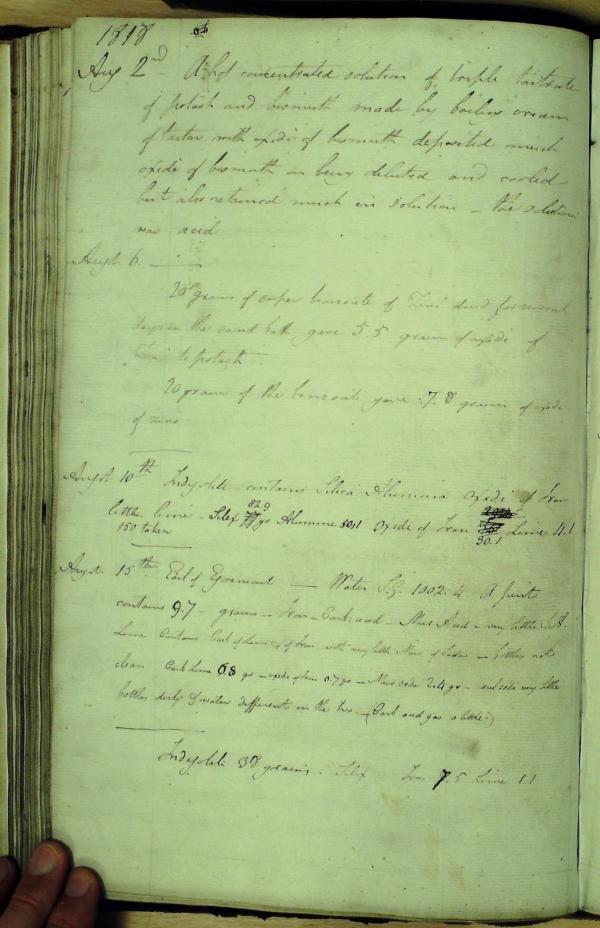 1818
Aug 2nd A hot concentrated solution of triple tartrate
of potash and bismuth made by boiling cream
of tartar with oxide of bismuth deposited much
oxide of bismuth on being diluted and cooled
but also retained much in solution - the solution
was acid
Augt 6
20 grains of benzoate of Zinc dried for several
days in the sand bath gave 5.5 grains of oxide of
Zinc potash
20 grains of the benzoate gave 7.8 grains of oxide
of zinc
Augst 10th Indigolite contains Silica Alumina Oxide of Iron
little lime Silex 82.9 grs Alumine 50.1 Oxide of Iron 30.1 Lime 4.1
150 taken
Augst 15th Earl of Egremont - Water S.G. 1002.4 A pint
contains 9.7 - grains - Iron - Carb acid - Mur Acid - very little S.A.
Lime Contains Carb of Lime & of Iron with very little Mur of Soda - bottles not
clean Carb Lime 6.8 grs - oxide of Iron 0.7 grs - Mur soda 2.4 grs - sul soda very little
bottles dirty & water different in the two - (Carb acid gas a little)
Indigolite 38 grains. Silex Iron 7.5 Lime 1.1